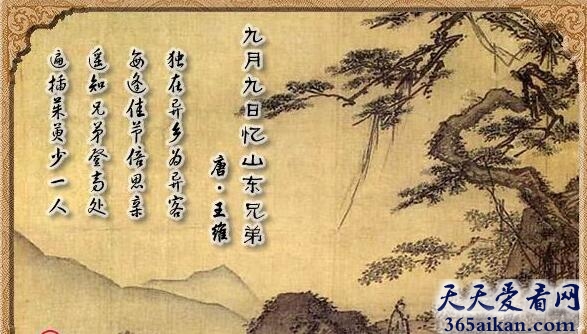 九月九日忆山东兄弟
唐·王维
独在异乡为异客
每逢佳节倍思亲
遥知兄弟登高处
遍插茱萸少一人
天天爱看网
365aikan.com